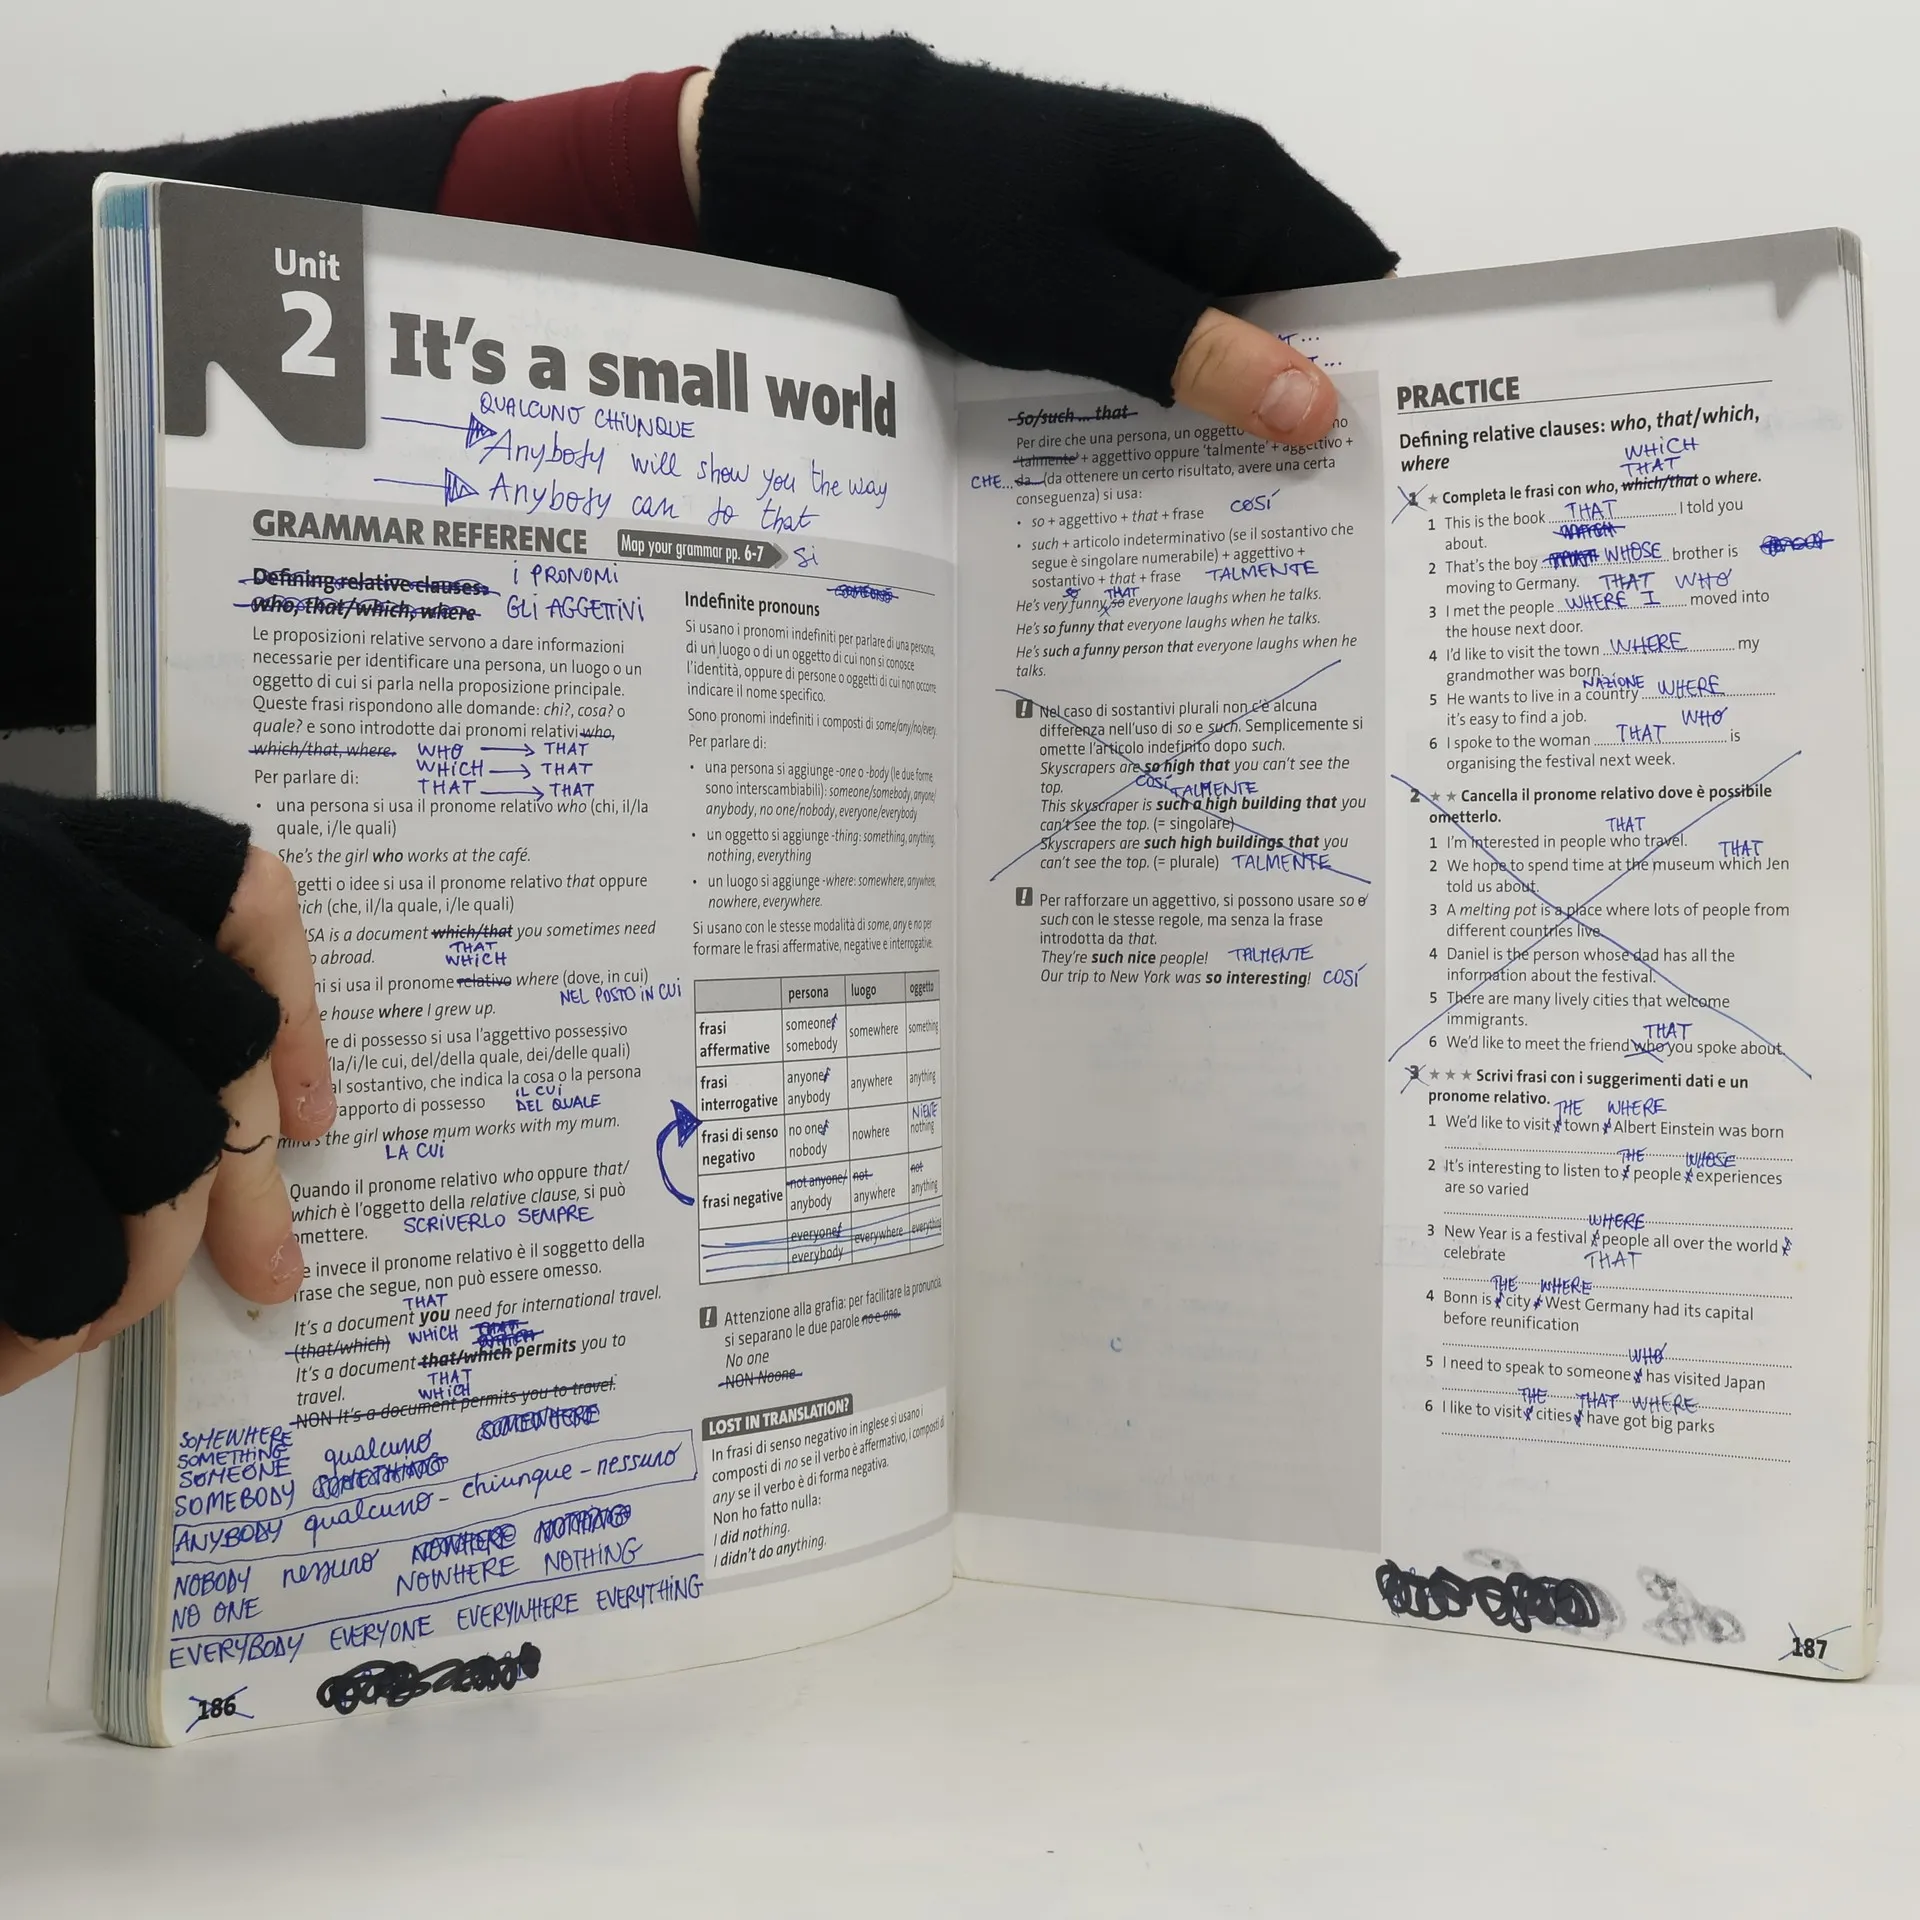 Unit
2
It's a small world
QUALCUNO CHIUNQUE
Anybody will show you the way
Anybody can do that
GRAMMAR REFERENCE
Map your grammar pp. 6-7
si
Defining relative clauses:
who, that/which, where
i PRONOMI
GLI AGGETTIVI
Le proposizioni relative servono a dare informazioni
necessarie per identificare una persona, un luogo o un
oggetto di cui si parla nella proposizione principale.
Queste frasi rispondono alle domande: chi?, cosa? o
quale? e sono introdotte dai pronomi relativi who,
which/that, where.
WHO → THAT
WHICH → THAT
THAT → THAT
Per parlare di:
• una persona si usa il pronome relativo who (chi, il/la
quale, i/le quali)
She's the girl who works at the café.
getti o idee si usa il pronome relativo that oppure
ich (che, il/la quale, i/le quali)
SA is a document which/that you sometimes need
THAT
abroad.
WHICH
hi si usa il pronome relativo where (dove, in cui)
NEL POSTO IN CUI
e house where I grew up.
re di possesso si usa l'aggettivo possessivo
/la/i/le cui, del/della quale, dei/delle quali)
al sostantivo, che indica la cosa o la persona
rapporto di possesso
IL CUI
DEL QUALE
the girl whose mum works with my mum.
LA CUI
Quando il pronome relativo who oppure that/
which è l'oggetto della relative clause, si può
omettere.
SCRIVERLO SEMPRE
e invece il pronome relativo è il soggetto della
frase che segue, non può essere omesso.
THAT
It's a document you need for international travel.
(that/which) WHICH
It's a document that/which permits you to
travel.
THAT
WHICH
NON It's a document permits you to travel.
SOMEWHERE
SOMETHING
SOMEONE
SOMEBODY
qualcuno
SOMEWHERE
SOMETHING
ANYBODY qualcuno - chiunque - nessuno
NOBODY nessuno NOWHERE NOTHING
NO ONE NOWHERE NOTHING
EVERYBODY EVERYONE EVERYWHERE EVERYTHING
186
Indefinite pronouns
Si usano i pronomi indefiniti per parlare di una persona,
di un luogo o di un oggetto di cui non si conosce
l'identità, oppure di persone o oggetti di cui non occorre
indicare il nome specifico.
Sono pronomi indefiniti i composti di some/any/no/every.
Per parlare di:
• una persona si aggiunge -one o -body (le due forme
sono interscambiabili): someone/somebody, anyone/
anybody, no one/nobody, everyone/everybody
• un oggetto si aggiunge -thing: something, anything,
nothing, everything
• un luogo si aggiunge -where: somewhere, anywhere,
nowhere, everywhere.
Si usano con le stesse modalità di some, any e no per
formare le frasi affermative, negative e interrogative.
persona luogo oggetto
frasi affermative someone/ somebody somewhere something
frasi interrogative anyone/ anybody anywhere anything
NIENTE
frasi di senso negativo no one/ nobody nowhere nothing
frasi negative not anyone/ anybody not anywhere not anything
everyone/ everybody everywhere everything
! Attenzione alla grafia: per facilitare la pronuncia
si separano le due parole no e one.
No one
NON Noone
LOST IN TRANSLATION?
In frasi di senso negativo in inglese si usano i
composti di no se il verbo è affermativo, i composti di
any se il verbo è di forma negativa.
Non ho fatto nulla:
I did nothing.
I didn't do anything.
So/such ... that
Per dire che una persona, un oggetto
'talmente' + aggettivo oppure 'talmente' + aggettivo +
CHE... da... (da ottenere un certo risultato, avere una certa
conseguenza) si usa:
• so + aggettivo + that + frase
COSÍ
• such + articolo indeterminativo (se il sostantivo che
segue è singolare numerabile) + aggettivo +
sostantivo + that + frase
TALMENTE
so THAT
He's very funny, so everyone laughs when he talks.
He's so funny that everyone laughs when he talks.
He's such a funny person that everyone laughs when he
talks.
! Nel caso di sostantivi plurali non c'è alcuna
differenza nell'uso di so e such. Semplicemente si
omette l'articolo indefinito dopo such.
Skyscrapers are so high that you can't see the
top.
COSÍ TALMENTE
This skyscraper is such a high building that you
can't see the top. (= singolare)
Skyscrapers are such high buildings that you
can't see the top. (= plurale) TALMENTE
! Per rafforzare un aggettivo, si possono usare so o
such con le stesse regole, ma senza la frase
introdotta da that.
They're such nice people! TALMENTE
Our trip to New York was so interesting! COSÍ
PRACTICE
Defining relative clauses: who, that/which,
where
WHICH
THAT
1 ★ Completa le frasi con who, which/that o where.
1 This is the book THAT I told you
about.
2 That's the boy WHOSE brother is
moving to Germany.
THAT WHO
3 I met the people WHERE I moved into
the house next door.
4 I'd like to visit the town WHERE my
grandmother was born.
NAZIONE
5 He wants to live in a country WHERE
it's easy to find a job.
WHO
6 I spoke to the woman THAT is
organising the festival next week.
2 ★★ Cancella il pronome relativo dove è possibile
ometterlo.
THAT
1 I'm interested in people who travel.
THAT
2 We hope to spend time at the museum which Jen
told us about.
3 A melting pot is a place where lots of people from
different countries live.
4 Daniel is the person whose dad has all the
information about the festival.
5 There are many lively cities that welcome
immigrants.
THAT
6 We'd like to meet the friend who you spoke about.
3 ★★★ Scrivi frasi con i suggerimenti dati e un
pronome relativo.
THE WHERE
1 We'd like to visit / town / Albert Einstein was born
THE WHOSE
2 It's interesting to listen to / people / experiences
are so varied
WHERE
3 New Year is a festival / people all over the world /
celebrate
THAT
THE WHERE
4 Bonn is / city / West Germany had its capital
before reunification
WHO
5 I need to speak to someone / has visited Japan
THE THAT WHERE
6 I like to visit / cities / have got big parks
187